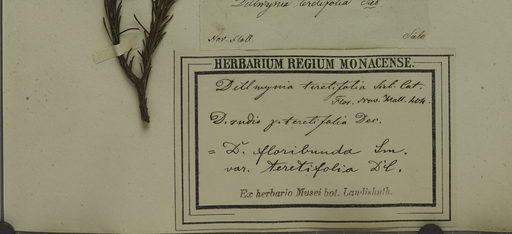 Dillwynia teretifolia Sieb
Nov. Holl.
HERBARIUM REGIUM MONACENSE.
Dillwynia teretifolia Sieb. Cat.
Flor. Nov. Holl.
D. rudis γ. teretifolia Dec.
= D. floribunda Sm.
var. teretifolia DC.
Ex herbario Musei bot. Landishuth.